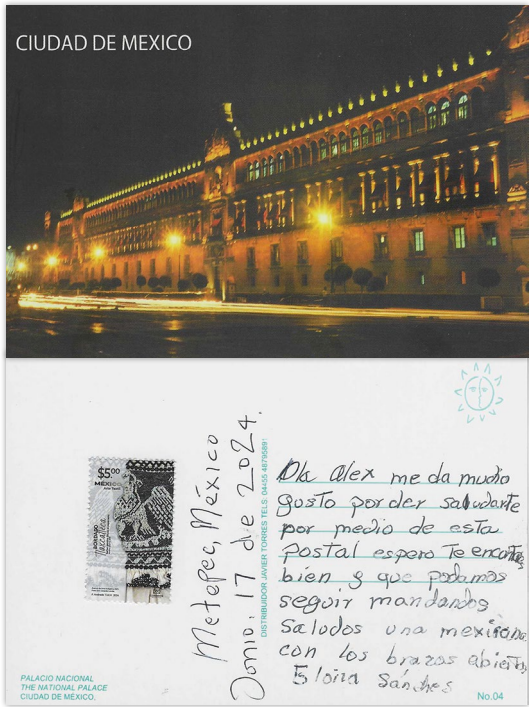 CIUDAD DE MEXICO
$5.00
MÉXICO
BORDADO
Metepec, México
Jonio. 17 de 2024.
DISTRIBUIDOR JAVIER TORRES TELS. 04455 48795891
Ola alex me da mucho
gusto por der saludarte
por medio de esta
Postal espero te encontres
bien y que podamos
seguir mandando
Saludos una mexicana
con los brazos abiertos
Eloira Sánches
PALACIO NACIONAL
THE NATIONAL PALACE
CIUDAD DE MÉXICO.
No.04